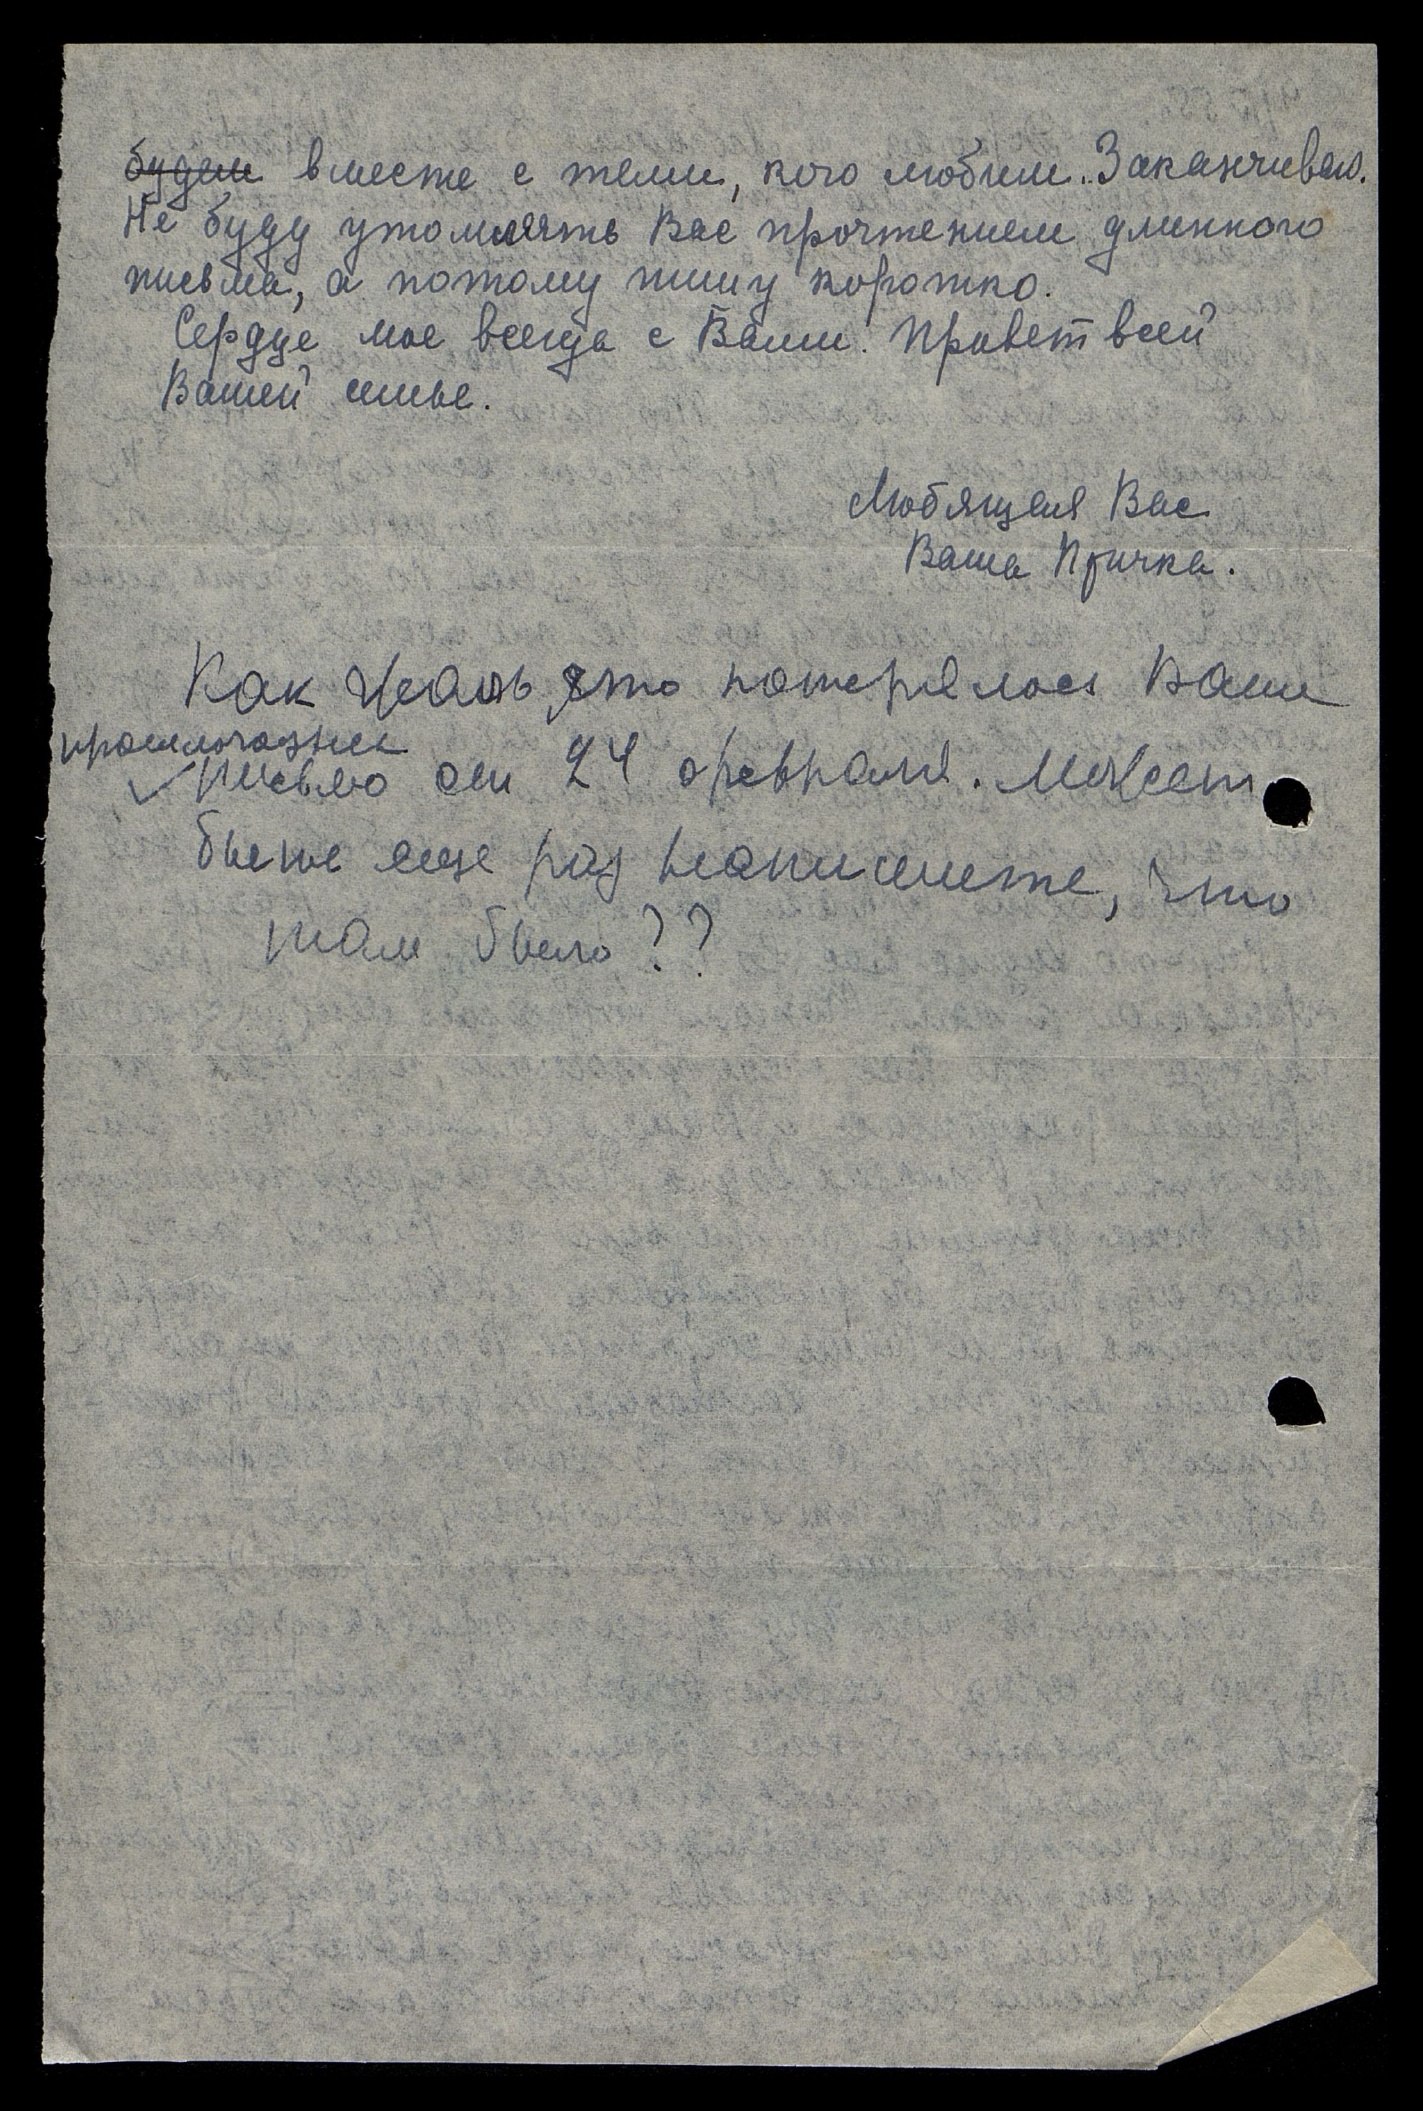 будем вместе с теми, кого любим. Заканчиваю.
Не буду утомлять Вас прочтением длинного
письма, а потому пишу коротко.
Сердце мое всегда с Вами. Привет всей
Вашей семье.
Любящая Вас
Ваша
Как жаль, что потерялось Ваше
прошлогоднее
письмо от 24 февраля. Может
быть еще раз напишете, что
там было??